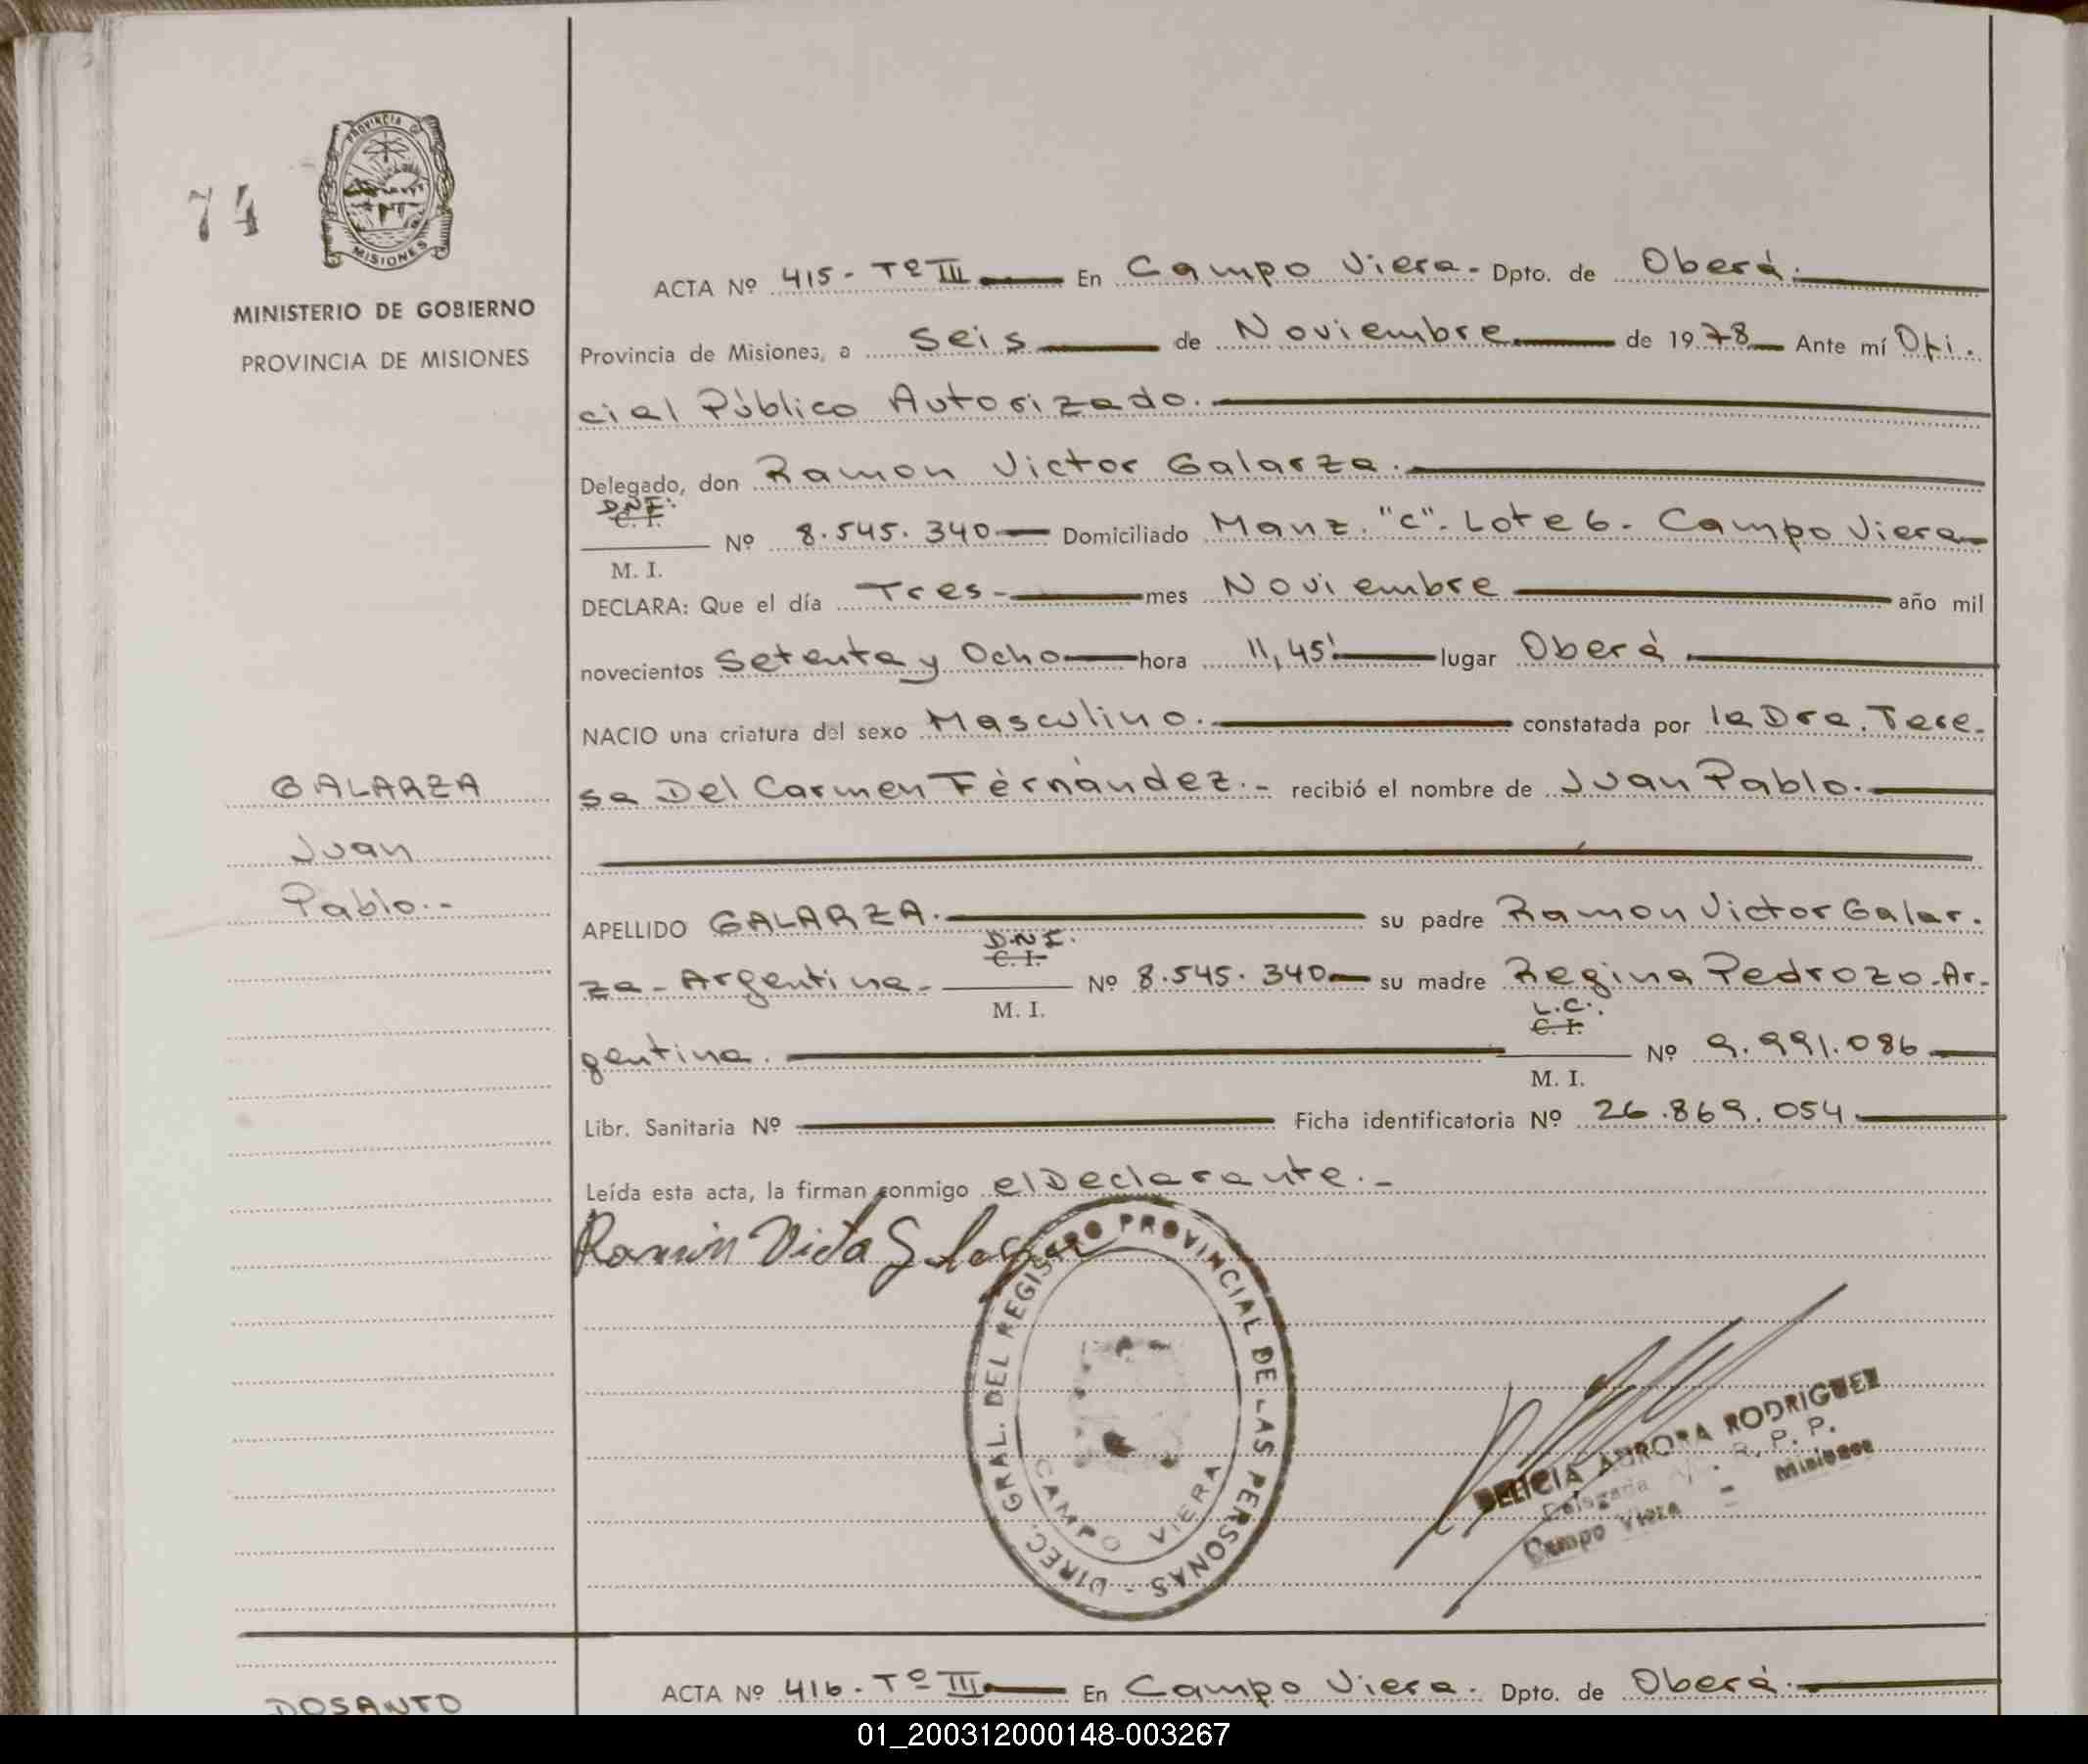 74
PROVINCIA DE
MISIONES
MINISTERIO DE GOBIERNO
PROVINCIA DE MISIONES
ACTA Nº 415- Tº III En Campo Viera- Dpto. de Oberá.
Provincia de Misiones, a Seis de Noviembre de 1978 Ante mí Ofi.
cial Público Autorizado.
Delegado, don Ramon Victor Galarza.
D.N.I.
C. I.
Nº 8.545.340 Domiciliado Manz. "C". Lote 6. Campo Viera
M. I.
DECLARA: Que el día Tres- mes Noviembre año mil
novecientos Setenta y Ocho hora 11,45' lugar Oberá
NACIO una criatura del sexo Masculino. constatada por la Dra. Tere.
sa Del Carmen Fernández.- recibió el nombre de Juan Pablo.
GALARZA
Juan
Pablo.-
APELLIDO GALARZA. su padre Ramon Victor Galar.
D.N.I.
C. I.
za- Argentina- Nº 8.545.340 su madre Regina Pedrozo-Ar-
M. I.
L.C.
C. I.
gentina. Nº 9.991.086
M. I.
Libr. Sanitaria Nº Ficha identificatoria Nº 26.869.054
Leída esta acta, la firman conmigo el Declarante.-
Ramón Victor Galarza
DIREC. GRAL. DEL REGISTRO PROVINCIAL DE LAS PERSONAS -
CAMPO VIERA
DELICIA AURORA RODRIGUEZ
Delegada R. P. P.
Campo Viera - Misiones
ACTA Nº 416- Tº III En Campo Viera. Dpto. de Oberá.
DOSANTO
01_200312000148-003267